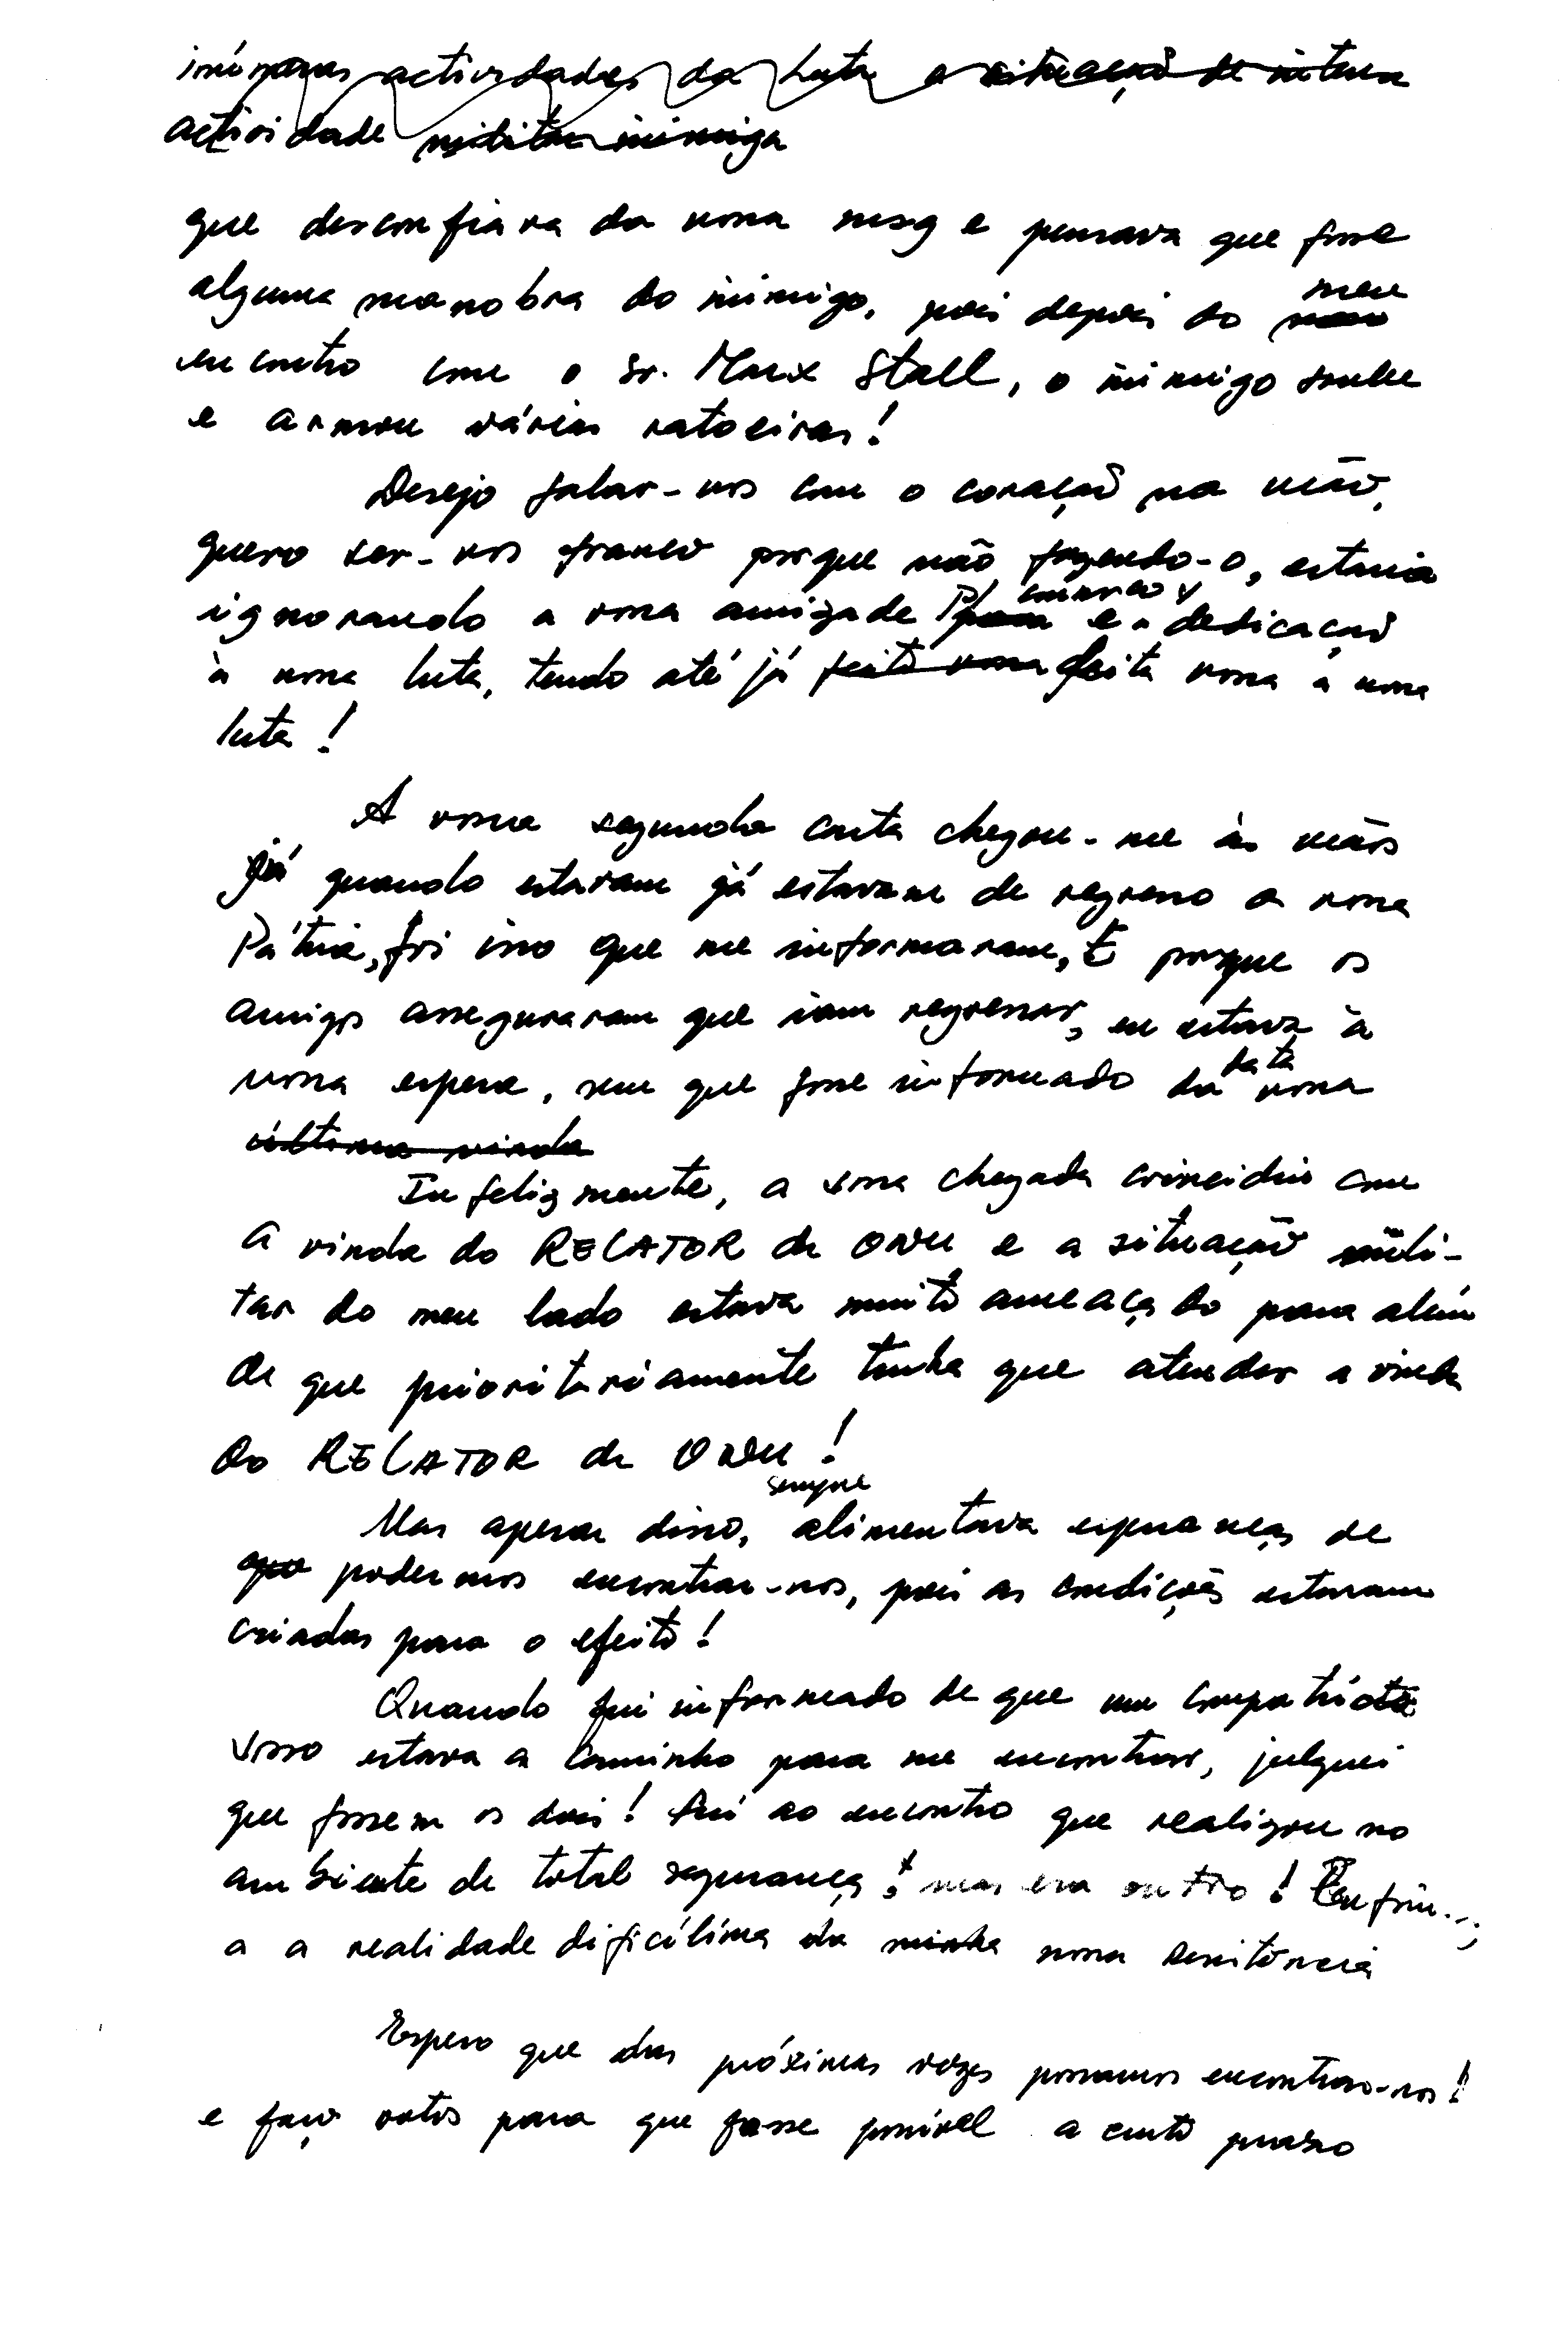 inúmeras actividades da luta e situação de intensa
actividade militar inimiga
que desconfiava da vossa msg e pensava que fosse
alguma manobra do inimigo, pois depois do meu
encontro com o Sr. Marx Stall, o inimigo soube
e armou várias ratoeiras!
Desejo falar-vos com o coração na mão,
quero ser-vos franco porque não fazendo-o, estaria
ignorando a vossa amizade P/ connosco e a dedicação
à nossa luta, tendo até já feito vossa feita vossa a nossa
luta!
A vossa segunda carta chegou-me às mãos
já quando estavam já estavam de regresso a vossa
Pátria, foi isso que me informaram, E porque os
amigos asseguraram que iam regressar, eu estava à
vossa espera, sem que fosse informado da data vossa
última vinda
Infelizmente, a vossa chegada coincidiu com
a vinda do RELATOR da ONU e a situação mili-
tar do meu lado estava muito ameaçado para além
de que prioritariamente tinha que atender a vinda
do RELATOR da ONU!
sempre
Mas apesar disso, alimentava esperanças de
que podermos encontrar-nos, pois as condições estavam
criadas para o efeito!
Quando fui informado de que um compatriota
vosso estava a caminho para me encontrar, julguei
que fossem os dois! Fui ao encontro que realizou no
ambiente de total segurança! mas era outro! Enfim...
a a realidade dificílima da minha nossa Resistência
Espero que das próximas vezes possamos encontrar-nos!
e faço votos para que fosse possível a curto prazo